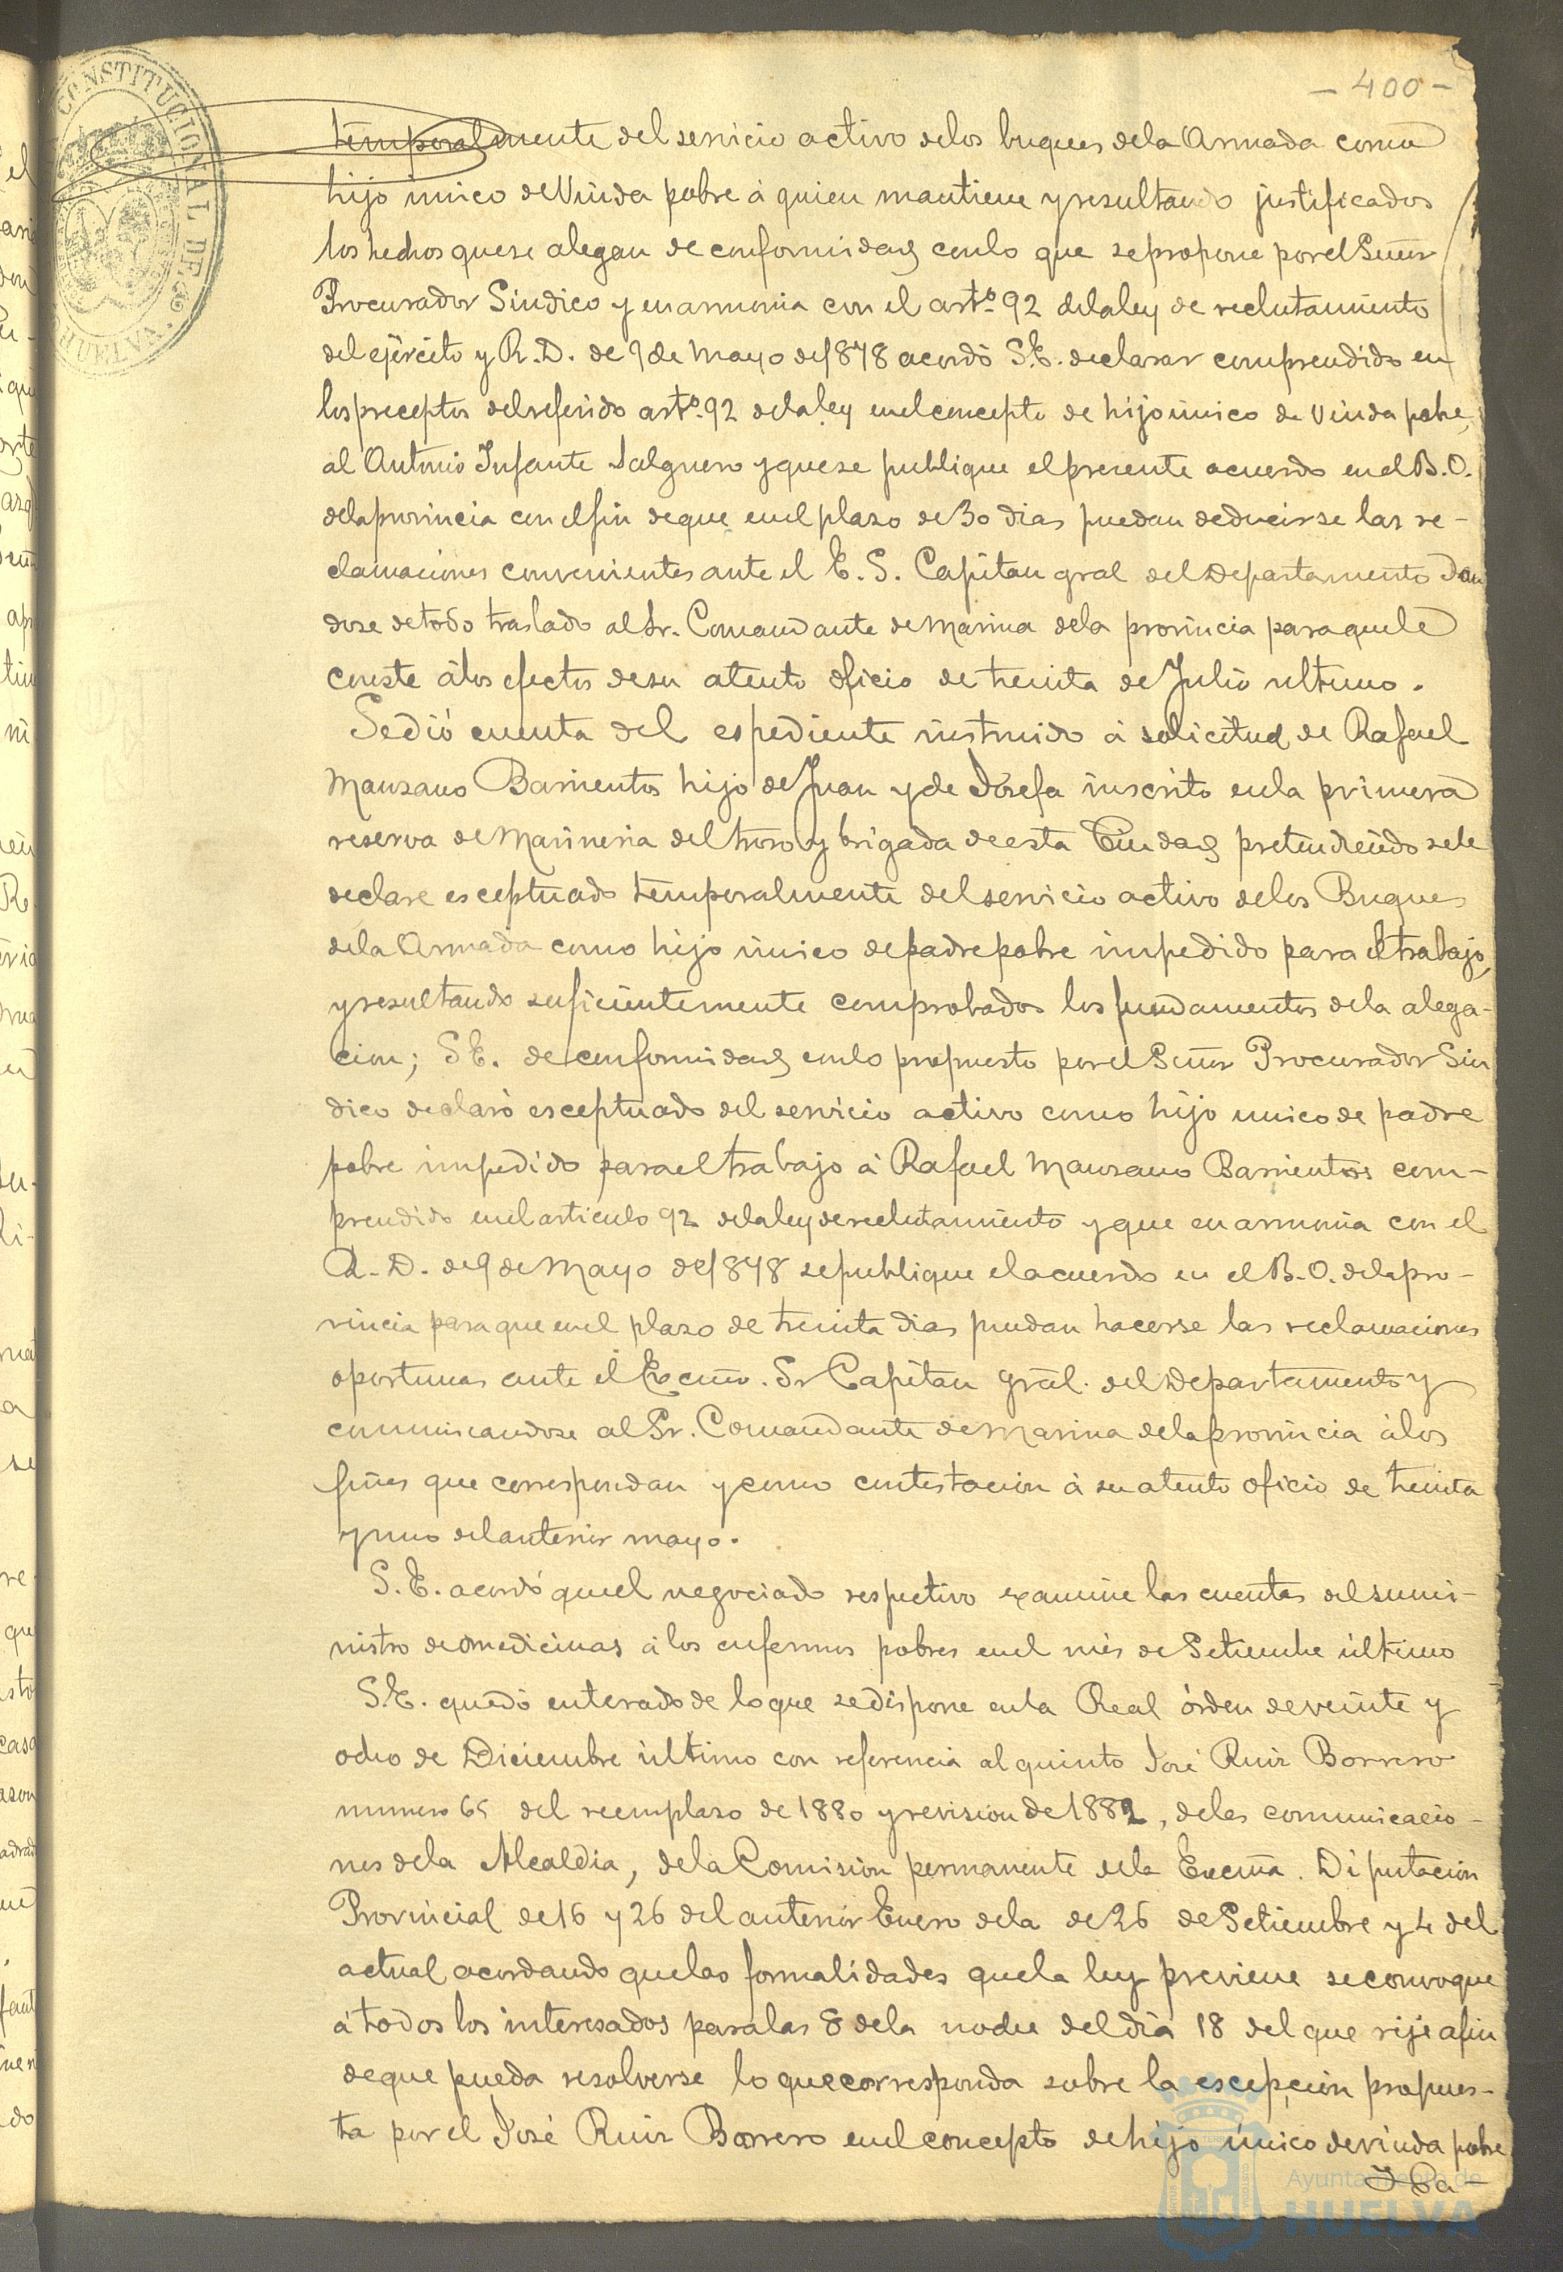 - 400 -
CONSTITUCIONAL DE
HUELVA
temporalmente del servicio activo de los buques de la Armada como
hijo único de Viuda pobre á quien mantiene y resultando justificados
los hechos que se alegan de conformidad con lo que se propone por el Señor
Procurador Síndico y en armonia con el artº 92 de la ley de reclutamiento
del ejército y R. D. de 9 de Mayo de 1878 acordó S. E. declarar comprendido en
los preceptos del referido artº 92 de la ley en el concepto de hijo único de Viuda pobre,
al Antonio Infante Salguero y que se publique el presente acuerdo en el B. O.
de la provincia con el fin de que en el plazo de 30 dias puedan deducirse las re-
clamaciones convenientes ante el E. S. Capitan gral del Departamento dan
dose de todo traslado al Sr. Comandante de Marina de la provincia para que le
conste á los efectos de su atento oficio de treinta de Julio ultimo.
Se dió cuenta del espediente instruido á solicitud de Rafael
Manzano Barrientos hijo de Juan y de Josefa inscrito en la primera
reserva de Marineria del trozo y brigada de esta Ciudad pretendiendo se le
declare esceptuado temporalmente del servicio activo de los Buques
de la Armada como hijo único de padre pobre impedido para el trabajo,
y resultando suficientemente comprobados los fundamentos de la alega-
cion; S. E. de conformidad con lo propuesto por el Señor Procurador Sin
dico declaró esceptuado del servicio activo como hijo unico de padre
pobre impedido para el trabajo á Rafael Manzano Barrientos com-
prendido en el articulo 92 de la ley de reclutamiento y que en armonia con el
R. D. de 9 de Mayo de 1878 se publique el acuerdo en el B. O. de la pro-
vincia para que en el plazo de treinta dias puedan hacerse las reclamaciones
oportunas ante el Excmo. Sr Capitan gral. del Departamento y
comunicandose al Sr. Comandante de Marina de la provincia á los
fines que correspondan y como contestacion á su atento oficio de treinta
y uno del anterior mayo.
S. E. acordó que el negociado respectivo examine las cuentas del sumi-
nistro de medicinas á los enfermos pobres en el mes de Setiembre último
S. E. quedó enterado de lo que se dispone en la Real órden de veinte y
ocho de Diciembre último con referencia al quinto José Ruiz Borrero
numero 65 del reemplazo de 1880 y revision de 1882, de las comunicacio-
nes de la Alcaldia, de la Comision permanente de la Excma. Diputacion
Provincial de 16 y 26 del anterior Enero de la de 26 de Setiembre y 4 del
actual acordando que las formalidades que la ley previene se convoque
á todos los interesados para las 8 de la noche del dia 18 del que rije a fin
de que pueda resolverse lo que corresponda sobre la escepcion propues-
ta por el José Ruiz Borrero en el concepto de hijo único de viuda pobre
Ayuntamiento de
HUELVA